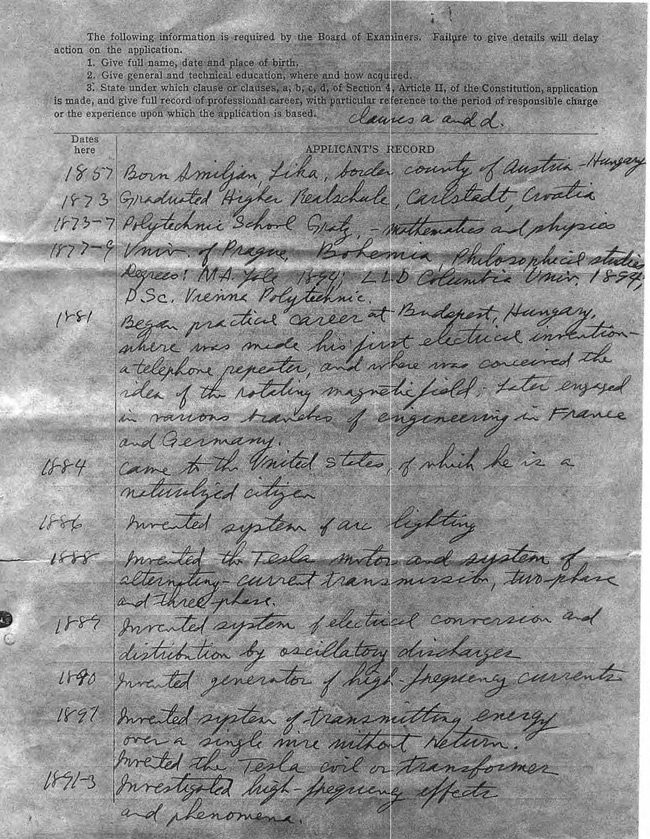 The following information is required by the Board of Examiners. Failure to give details will delay
action on the application.
1. Give full name, date and place of birth.
2. Give general and technical education, where and how acquired.
3. State under which clause or clauses, a, b, c, d, of Section 4, Article II, of the Constitution, application
is made, and give full record of professional career, with particular reference to the period of responsible charge
or the experience upon which the application is based. Clauses a and d.
Dates
here
APPLICANT'S RECORD
1857 Born Smiljan, Lika, border county of Austria-Hungary
1873 Graduated Higher Realschule, Carlstadt, Croatia
1873-7 Polytechnic School Gratz, - mathematics and physics
1877-9 Univ. of Prague, Bohemia Philosophical studies
Degrees: M.A. Yale 1894; LLD Columbia Univ. 1894;
D.Sc. Vienna Polytechnic.
1881 Began practical career at Budapest, Hungary,
where was made his first electrical invention-
a telephone repeater, and where was conceived the
idea of the rotating magnetic field. Later engaged
in various branches of engineering in France
and Germany.
1884 Came to the United States, of which he is a
naturalized citizen
1886 Invented system of arc lighting
1888 Invented the Tesla motor and system of
alternating-current transmission, two-phase
and three-phase.
1889 Invented system of electrical conversion and
distribution by oscillatory discharges
1890 Invented generator of high-frequency currents
1891 Invented system of transmitting energy
over a single wire without return.
Invented the Tesla coil or transformer
1891-3 Investigated high-frequency effects
and phenomena.